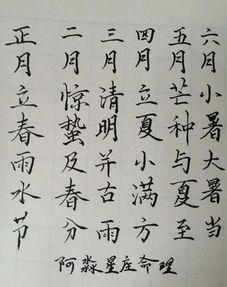 正月立春雨水节
二月惊蛰及春分
三月清明并古雨
四月立夏小满方
五月芒种与夏至
六月小暑大暑当
阿淼星座命理